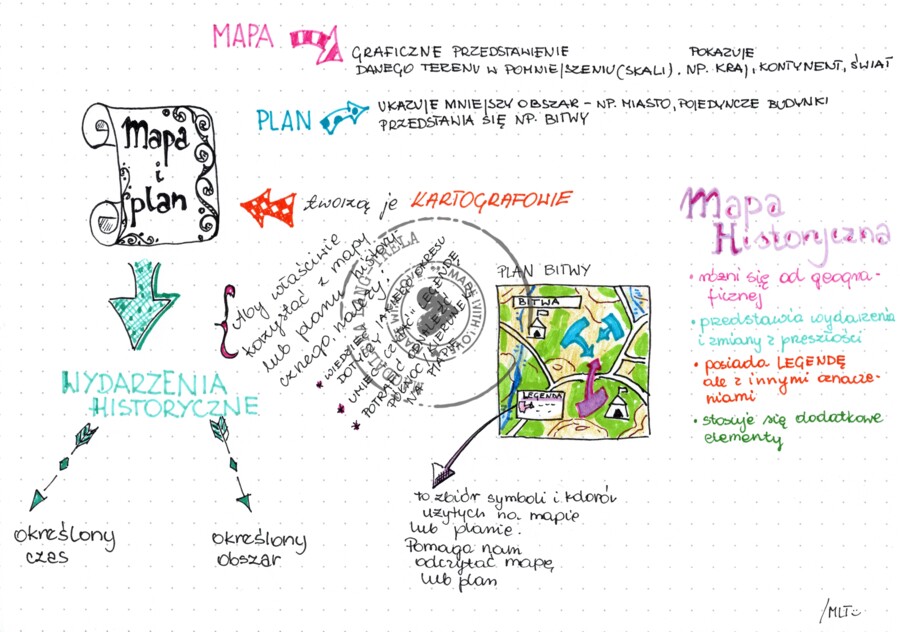 MAPA
GRAFICZNE PRZEDSTAWIENIE POKAZUJE
DANEGO TERENU W POMNIEJSZENIU (SKALI). NP. KRAJ, KONTYNENT, ŚWIAT
PLAN
UKAZUJE MNIEJSZY OBSZAR – NP. MIASTO, POJEDYNCZE BUDYNKI
PRZEDSTAWIA SIĘ NP. BITWY
Mapa
i
plan
tworzą je KARTOGRAFOWIE
Aby właściwie
korzystać z mapy
lub planu history
cznego należy:
* WIEDZIEĆ JAKIEGO OKRESU
DOTYCZY
UMIEĆ CZYTAĆ LEGENDĘ
* POTRAFIĆ ZNALEŹĆ
PÓŁNOC KIERUNEK
NA MAPIE
MADE WITH
WYDARZENIA
HISTORYCZNE
określony
czas
określony
obszar
PLAN BITWY
BITWA
LEGENDA
to zbiór symboli i kolorów
użytych na mapie
lub planie.
Pomaga nam
odczytać mapę
lub plan
Mapa
Historyczna
• różni się od geogra-
ficznej
• przedstawia wydarzenia
i zmiany z przeszłości
• posiada LEGENDĘ
ale z innymi oznacze-
niami
• stosuje się dodatkowe
elementy
/MLT